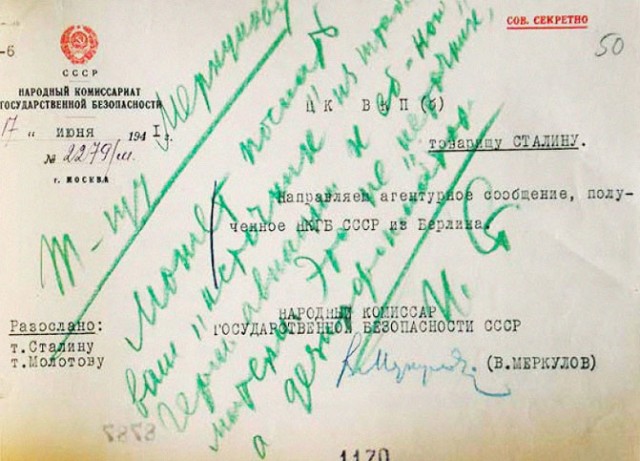 СОВ. СЕКРЕТНО
50
-6
СССР
НАРОДНЫЙ КОМИССАРИАТ
ГОСУДАРСТВЕННОЙ БЕЗОПАСНОСТИ
17 " июня 1941 г.
№ 2279/м.
г. МОСКВА
ЦК ВКП(б)
товарищу СТАЛИНУ.
Направляем агентурное сообщение, полу-
ченное НКГБ СССР из Берлина.
НАРОДНЫЙ КОМИССАР
ГОСУДАРСТВЕННОЙ БЕЗОПАСНОСТИ СССР
(В.МЕРКУЛОВ)
Разослано:
т.Сталину
т.Молотову
Т-щу Меркулову
Может послать
ваш "источник" из штаба
герм. авиации к еб-ной
матери. Это не "источник",
а дезинформатор.
И. Ст
1170